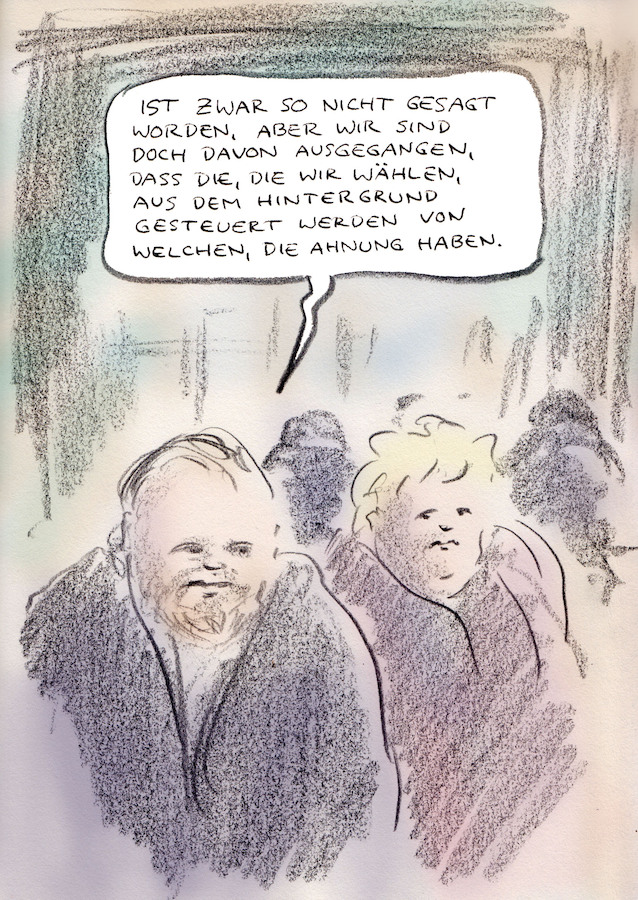 IST ZWAR SO NICHT GESAGT
WORDEN, ABER WIR SIND
DOCH DAVON AUSGEGANGEN,
DASS DIE, DIE WIR WÄHLEN,
AUS DEM HINTERGRUND
GESTEUERT WERDEN VON
WELCHEN, DIE AHNUNG HABEN.